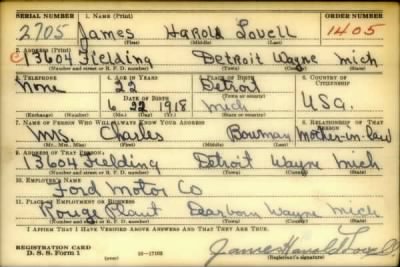 SERIAL NUMBER 1. NAME (Print) ORDER NUMBER
2705 James Harold Lovell 1405
(First) (Middle) (Last)
2. ADDRESS (Print)
13604 Fielding Detroit Wayne Mich
(Number and street or R. F. D. number) (Town) (County) (State)
3. TELEPHONE 4. AGE IN YEARS 5. PLACE OF BIRTH 6. COUNTRY OF CITIZENSHIP
None 22 Detroit
DATE OF BIRTH (Town or county)
6 22 1918 Mich USa.
(Exchange) (Number) (Mo.) (Day) (Yr.) (State or country)
7. NAME OF PERSON WHO WILL ALWAYS KNOW YOUR ADDRESS 8. RELATIONSHIP OF THAT PERSON
Mrs. Charles Bowman Mother-in-law
(Mr., Mrs., Miss) (First) (Middle) (Last)
9. ADDRESS OF THAT PERSON
13604 Fielding Detroit Wayne Mich
(Number and street or R. F. D. number) (Town) (County) (State)
10. EMPLOYER'S NAME
Ford Motor Co
11. PLACE OF EMPLOYMENT OR BUSINESS
Rouge Plant Dearborn Wayne Mich
(Number and street or R. F. D. number) (Town) (County) (State)
I AFFIRM THAT I HAVE VERIFIED ABOVE ANSWERS AND THAT THEY ARE TRUE.
REGISTRATION CARD
D. S. S. Form 1 (over) James Harold Lovell
(Registrant's signature)